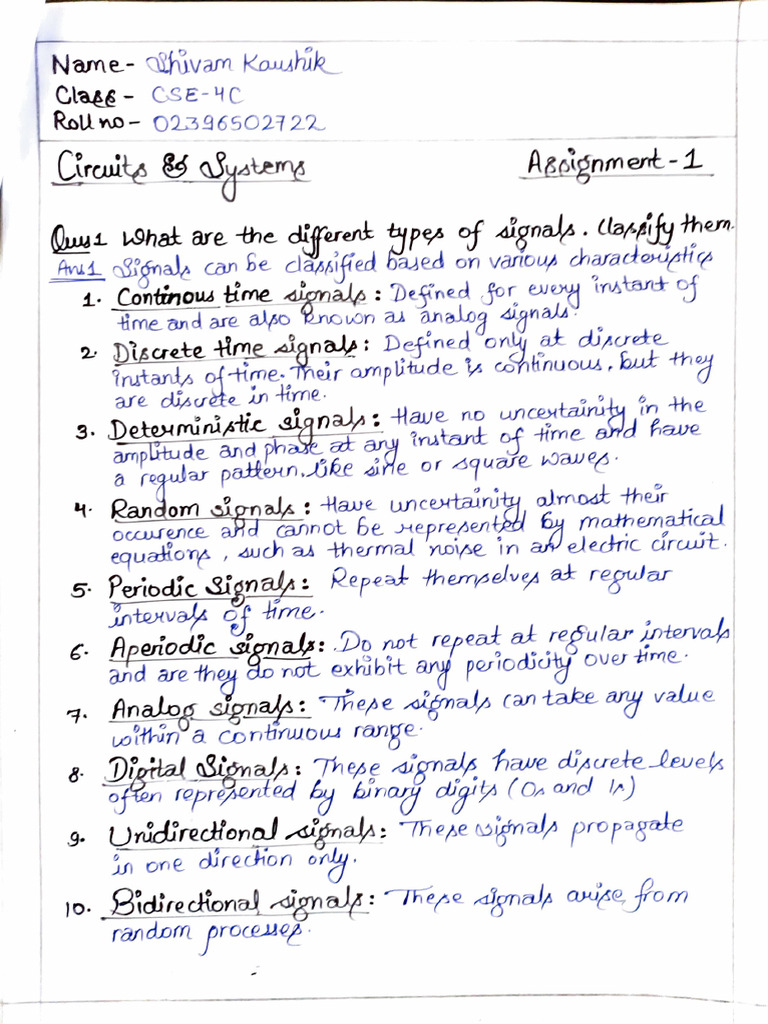 Name - Shivam Kaushik
Class - CSE-4C
Roll no - 02396502722
Circuits & Systems Assignment - 1
Ques1 What are the different types of signals. Classify them.
Ans1 Signals can be classified based on various characteristics
1. Continous time signals: Defined for every instant of
time and are also known as analog signals.
2. Discrete time signals: Defined only at discrete
instants of time. Their amplitude is continuous, but they
are discrete in time.
3. Deterministic signals: Have no uncertainity in the
amplitude and phase at any instant of time and have
a regular pattern, like sine or square waves.
4. Random signals: Have uncertainity almost their
occurence and cannot be represented by mathematical
equations, such as thermal noise in an electric circuit.
5. Periodic Signals: Repeat themselves at regular
intervals of time.
6. Aperiodic signals: Do not repeat at regular intervals
and are they do not exhibit any periodicity over time.
7. Analog signals: These signals can take any value
within a continuous range.
8. Digital Signals: These signals have discrete levels
often represented by binary digits (0s and 1s)
9. Unidirectional signals: These signals propagate
in one direction only.
10. Bidirectional signals: These signals arise from
random processes.